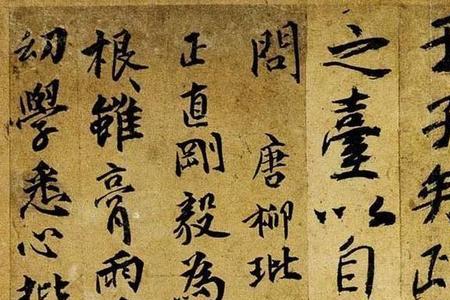 子矣
之臺以自
問 唐柳玭
正直剛毅為
根雖膏雨
幼學悉心